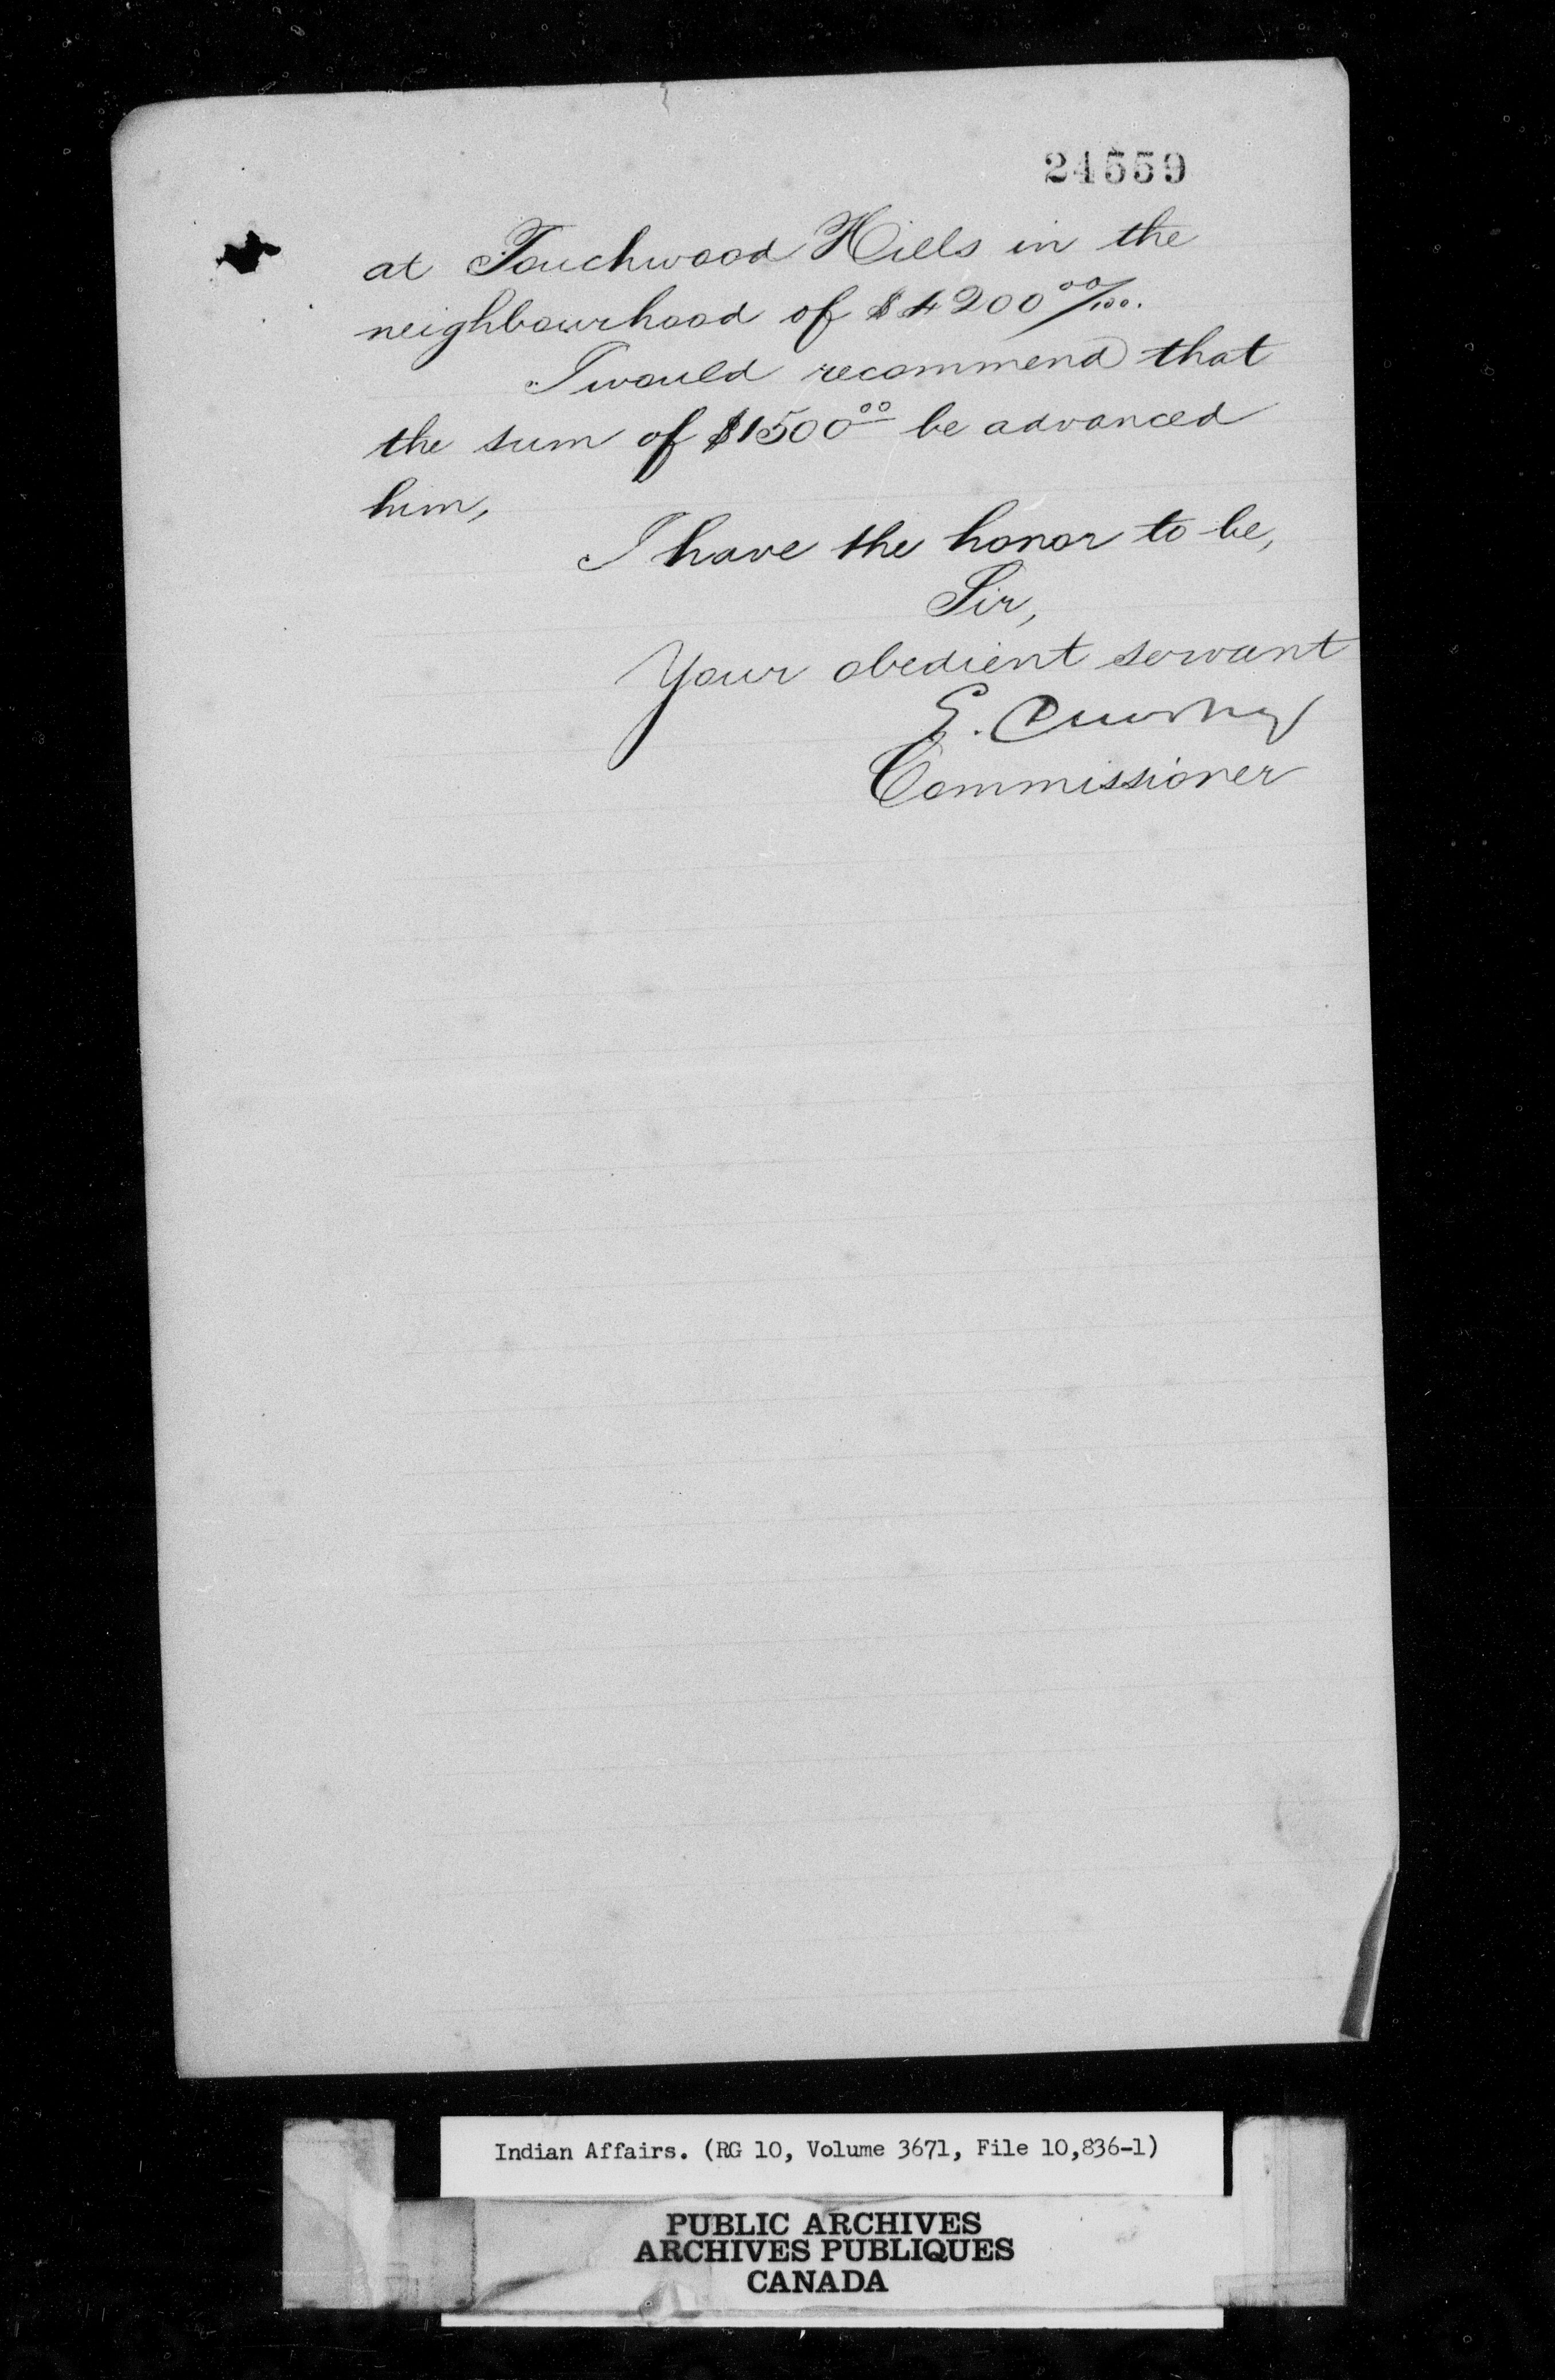 24559
at Touchwood Hills in the
neighbourhood of $4200 00/100.
I would recommend that
the sum of $1500 00 be advanced
him,
I have the honor to be,
Sir,
Your obedient servant
E. Dewdney
Commissioner
Indian Affairs. (RG 10, Volume 3671, File 10,836-1)
PUBLIC ARCHIVES
ARCHIVES PUBLIQUES
CANADA